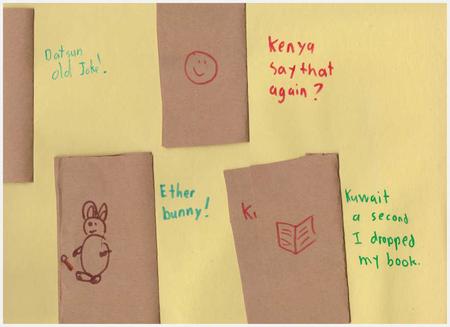 Datsun
old Joke!
Kenya
say that
again?
Ether
bunny!
Ki
Kuwait
a second
I dropped
my book.